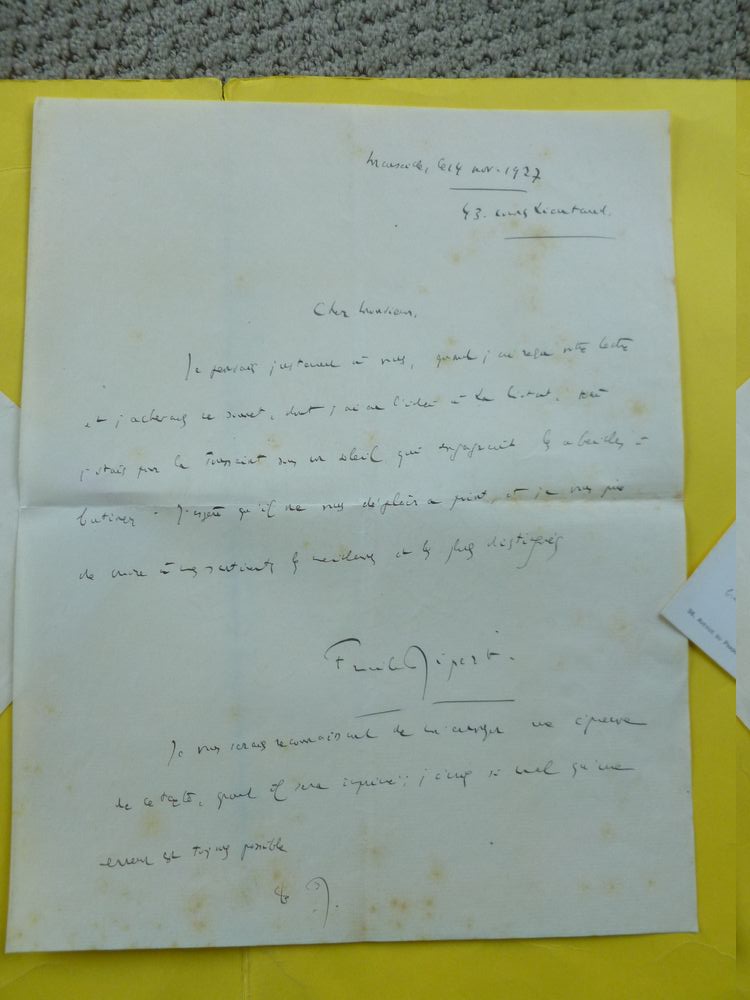 Marseille, le 14 nov. 1927
43. cours Lieutaud.
Cher Monsieur,
Je pensais justement à vous, quand j'ai reçu votre lettre
et j'achevais ce sonnet, dont j'ai eu l'idée à La Ciotat, où
j'étais pour la Toussaint sous un soleil qui engageait les abeilles à
butiner. J'espère qu'il ne vous déplaira point, et je vous prie
de croire à mes sentiments les meilleurs et les plus distingués
Emile Ripert.
Je vous serais reconnaissant de m'envoyer une épreuve
de ce texte, quand il sera imprimé; j'écris si mal qu'une
erreur est toujours possible